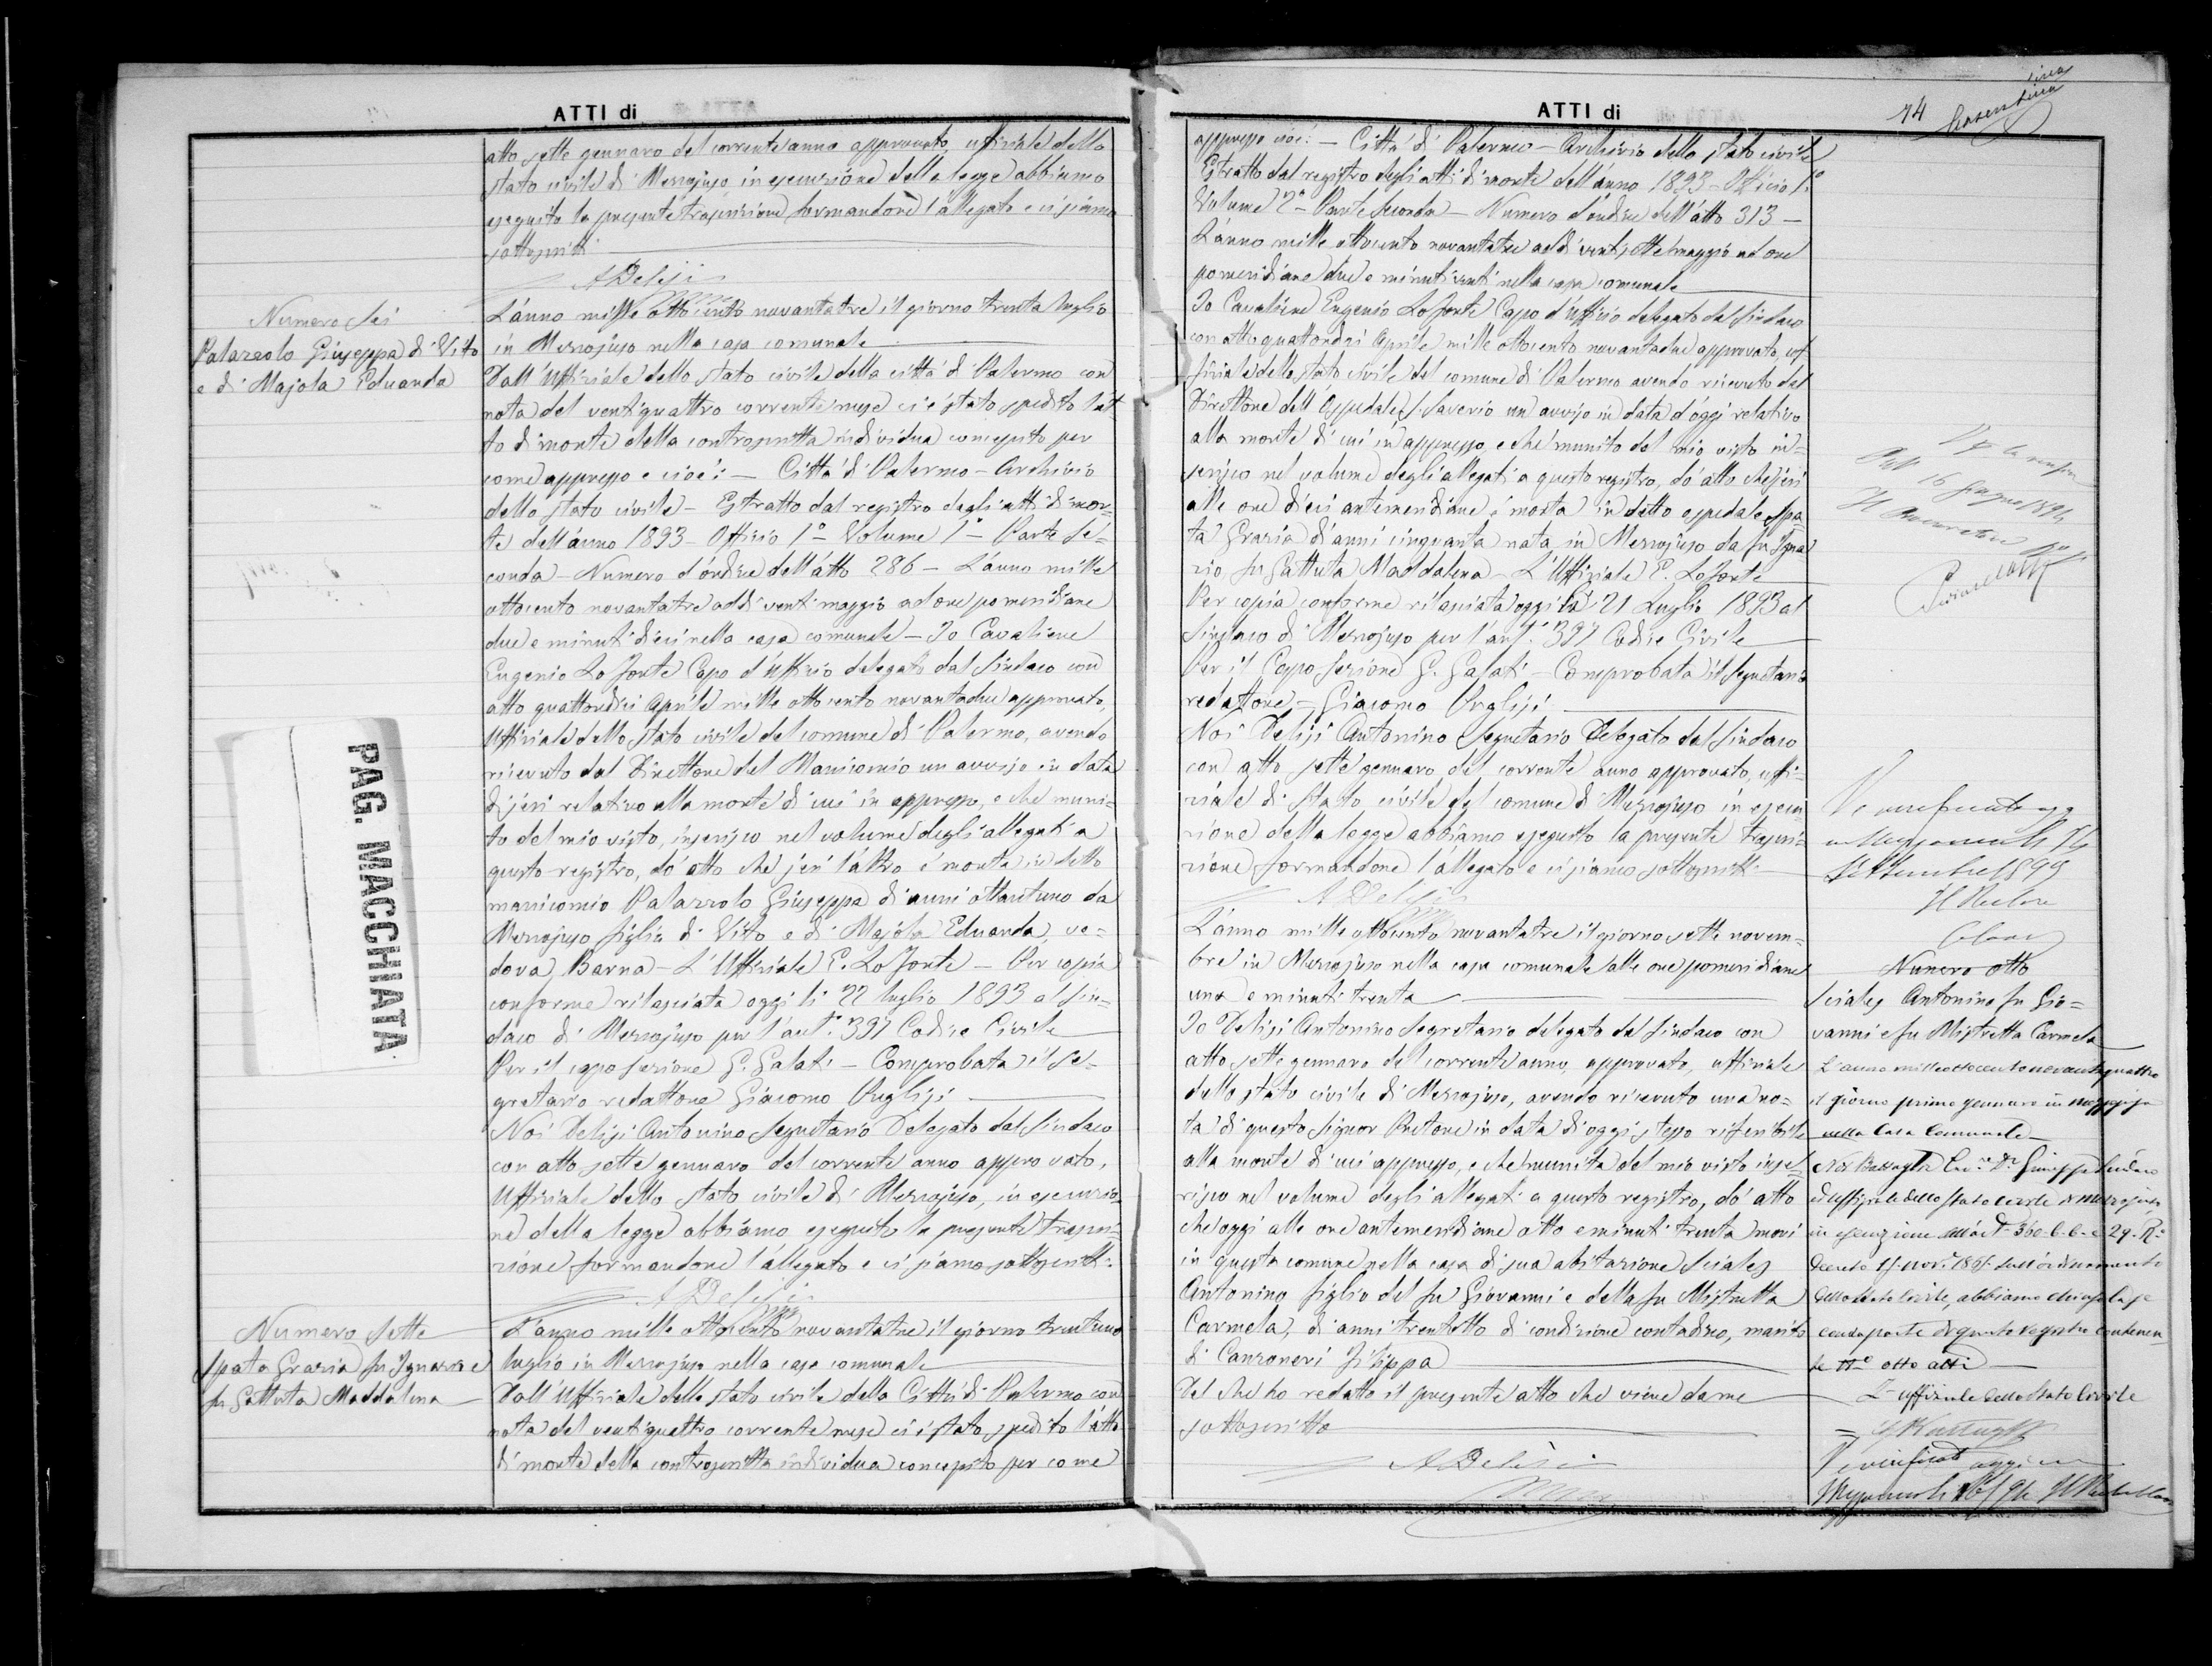 ATTI di
atto sette gennaro del corrente anno approvato, uffiziale dello
stato civile di Mezzojuso in esecuzione della legge abbiamo
eseguito la presente trascrizione formandone l'allegato e ci siamo
sottoscritti
A Delisi
Numero Sei
Palazzolo Giuseppa di Vito
e di Majola Eduarda
L'anno mille ottocento novantatre il giorno trenta luglio
in Mezzojuso nella casa comunale
Dall'Uffiziale dello stato civile della città di Palermo con
nota del ventiquattro corrente mese ci è stato spedito l'at
to di morte della controscritta individua concepito per
come appresso e cioè: — Città di Palermo — Archivio
dello stato civile — Estratto dal registro degli atti di mor=
te dell'anno 1893 — Officio 1° — Volume 1° — Parte Se=
conda — Numero d'ordine dell'atto 286 — L'anno mille
ottocento novantatre addì venti maggio ad ore pomeridiane
due e minuti dieci nella casa comunale — Io Cavaliere
Eugenio Lo Forte Capo d'Uffizio delegato dal Sindaco con
atto quattordici Aprile mille ottocento novantadue approvato,
Uffiziale dello stato civile del comune di Palermo, avendo
ricevuto dal Direttore del Manicomio un avviso in data
di jeri relativo alla morte di cui in appresso, e che muni=
to del mio visto, inserisco nel volume degli allegati a
questo registro, dò atto che jeri l'altro è morta in detto
manicomio Palazzolo Giuseppa di anni ottantuno da
Mezzojuso figlia di Vito e di Majola Eduarda, ve=
dova Barna — L'Uffiziale E. Lo Forte — Per copia
conforme rilasciata oggi li 22 luglio 1893 al Sin=
daco di Mezzojuso per l'art.° 397 Codice Civile
Per il capo sezione G. Galati — Comprobata il Se=
gretario redattore Giacomo Puglisi
Noi Delisi Antonino Segretario Delegato dal Sindaco
con atto sette gennaro del corrente anno approvato,
Uffiziale dello stato civile di Mezzojuso, in esecuzio=
ne della legge abbiamo eseguito la presente trascri=
zione formandone l'allegato e ci siamo sottoscritti:
A Delisi
Numero Sette
Spata Grazia fu Ignazio e
fu Gattuta Maddalena
L'anno mille ottocento novantatre il giorno trentuno
luglio in Mezzojuso nella casa comunale
Dall'Uffiziale dello stato civile della Città di Palermo con
nota del ventiquattro corrente mese ci è stato spedito l'atto
di morte della controscritta individua concepito per come
PAG. MACCHIATA
ATTI di
74
appresso cioè: — Città di Palermo — Archivio dello stato civile
Estratto dal registro degli atti di morte dell'anno 1893 — Officio 1°
Volume 2° — Parte Seconda — Numero d'ordine dell'atto 313 —
L'anno mille ottocento novantatre addì ventisette maggio ad ore
pomeridiane due e minuti venti nella casa comunale
Io Cavaliere Eugenio Lo Forte Capo d'Uffizio delegato dal Sindaco
con atto quattordici Aprile mille ottocento novantadue approvato, uf
fiziale dello stato civile del comune di Palermo avendo ricevuto dal
Direttore dell'Ospedale S. Saverio un avviso in data d'oggi relativo
alla morte di cui in appresso, e che munito del mio visto in=
serisco nel volume degli allegati a questo registro, dò atto che jeri
alle ore dieci antemeridiane è morta in detto ospedale Spa=
ta Grazia di anni cinquanta nata in Mezzojuso da fu Igna
zio, fu Gattuta Maddalena — L'Uffiziale E. Lo Forte
Per copia conforme rilasciata oggi li 21 Luglio 1893 al
Sindaco di Mezzojuso per l'art.° 397 Codice Civile
Per il Capo Sezione G. Galati — Comprobata il Segretario
redattore — Giacomo Puglisi
Noi Delisi Antonino Segretario Delegato dal Sindaco
con atto sette gennaro del corrente anno approvato, uffi=
ziale di Stato civile del comune di Mezzojuso in esecu
zione della legge abbiamo eseguito la presente trascri=
zione formandone l'allegato e ci siamo sottoscritti
A Delisi
L'anno mille ottocento novantatre il giorno sette novem=
bre in Mezzojuso nella casa comunale alle ore pomeridiane
una e minuti trenta
Io Delisi Antonino Segretario delegato dal Sindaco con
atto sette gennaro del corrente anno, approvato, uffiziale
dello stato civile di Mezzojuso, avendo ricevuto una no=
ta di questo Signor Pretore in data di oggi stesso riferibile
alla morte di cui appresso, e che munita del mio visto inse=
risco nel volume degli allegati a questo registro, dò atto
che oggi alle ore antemeridiane otto e minuti trenta morì
in questa comune nella casa di sua abitazione Sciales
Antonino figlio del fu Giovanni e della fu Mistretta
Carmela, di anni trentotto di condizione contadino, marito
di Canzoneri Filippa
Del che ho redatto il presente atto che viene da me
sottoscritto
A Delisi
16 Giugno 1894
Settembre 1899
Numero otto
Sciales Antonino fu Gio=
vanni e fu Mistretta Carmela
L'anno milleottocentonovantaquattro
il giorno primo gennaro in Mezzojuso
nella Casa Comunale
Noi Giuseppe Sindaco
ed Uffiziale dello Stato Civile di Mezzojuso
in esecuzione all'art. 360 C. C. e 29 R.°
Decreto 15 nov. 1865 sull'ordinamento
dello stato Civile, abbiamo chiuso la se
conda parte di questo registro contenen
te N° otto atti
L'uffiziale dello Stato Civile